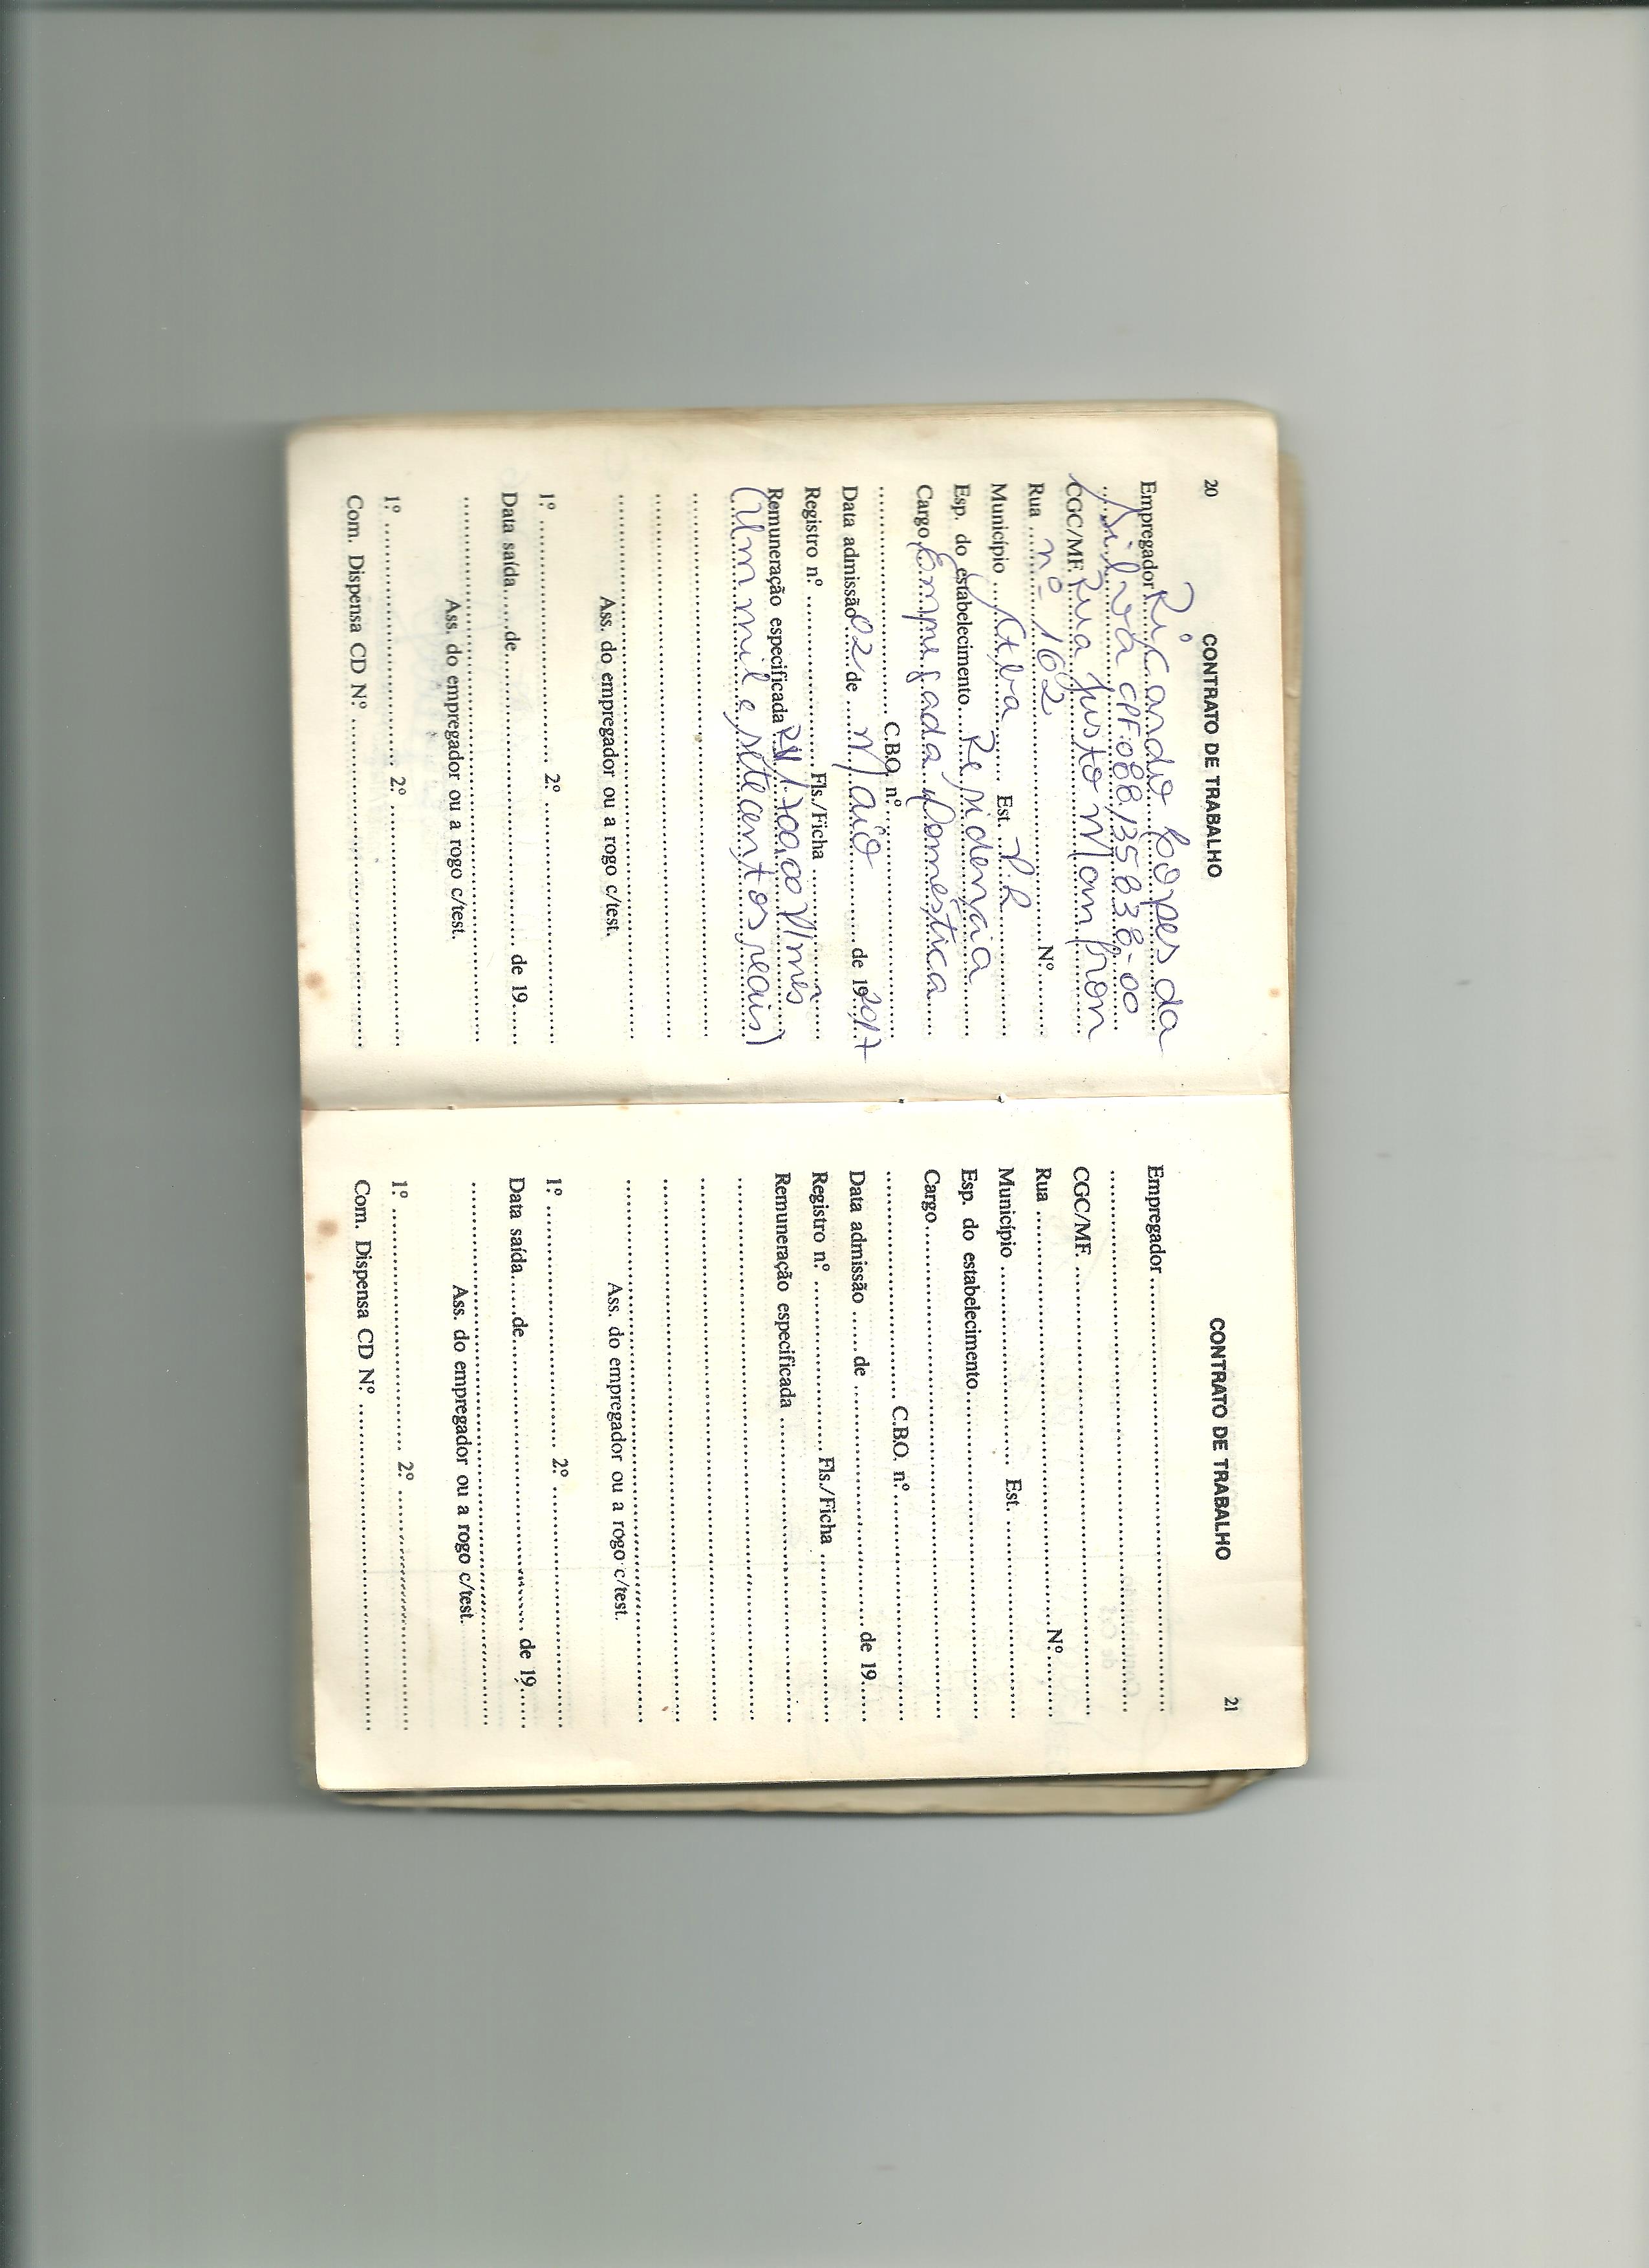 20
CONTRATO DE TRABALHO
Empregador Ricardo Lopes da
Silva CPF:088135838-00
CGC/MF. Rua Justo Manfron
Rua nº 1602 Nº
Município Ctba Est. PR
Esp. do estabelecimento Residencia
Cargo Empregada Doméstica
C.B.O. nº
Data admissão 02 de Maio de 19 2017
Registro nº Fls./Ficha
Remuneração especificada R$ 1.700,00 P/mês
(Um mil e setecentos reais)
Ass. do empregador ou a rogo c/test.
1º 2º
Data saída de de 19
Ass. do empregador ou a rogo c/test.
1º 2º
Com. Dispensa CD Nº
21
CONTRATO DE TRABALHO
Empregador
CGC/MF.
Rua Nº
Município Est.
Esp. do estabelecimento
Cargo
C.B.O. nº
Data admissão de de 19
Registro nº Fls./Ficha
Remuneração especificada
Ass. do empregador ou a rogo c/test.
1º 2º
Data saída de de 19
Ass. do empregador ou a rogo c/test.
1º 2º
Com. Dispensa CD Nº